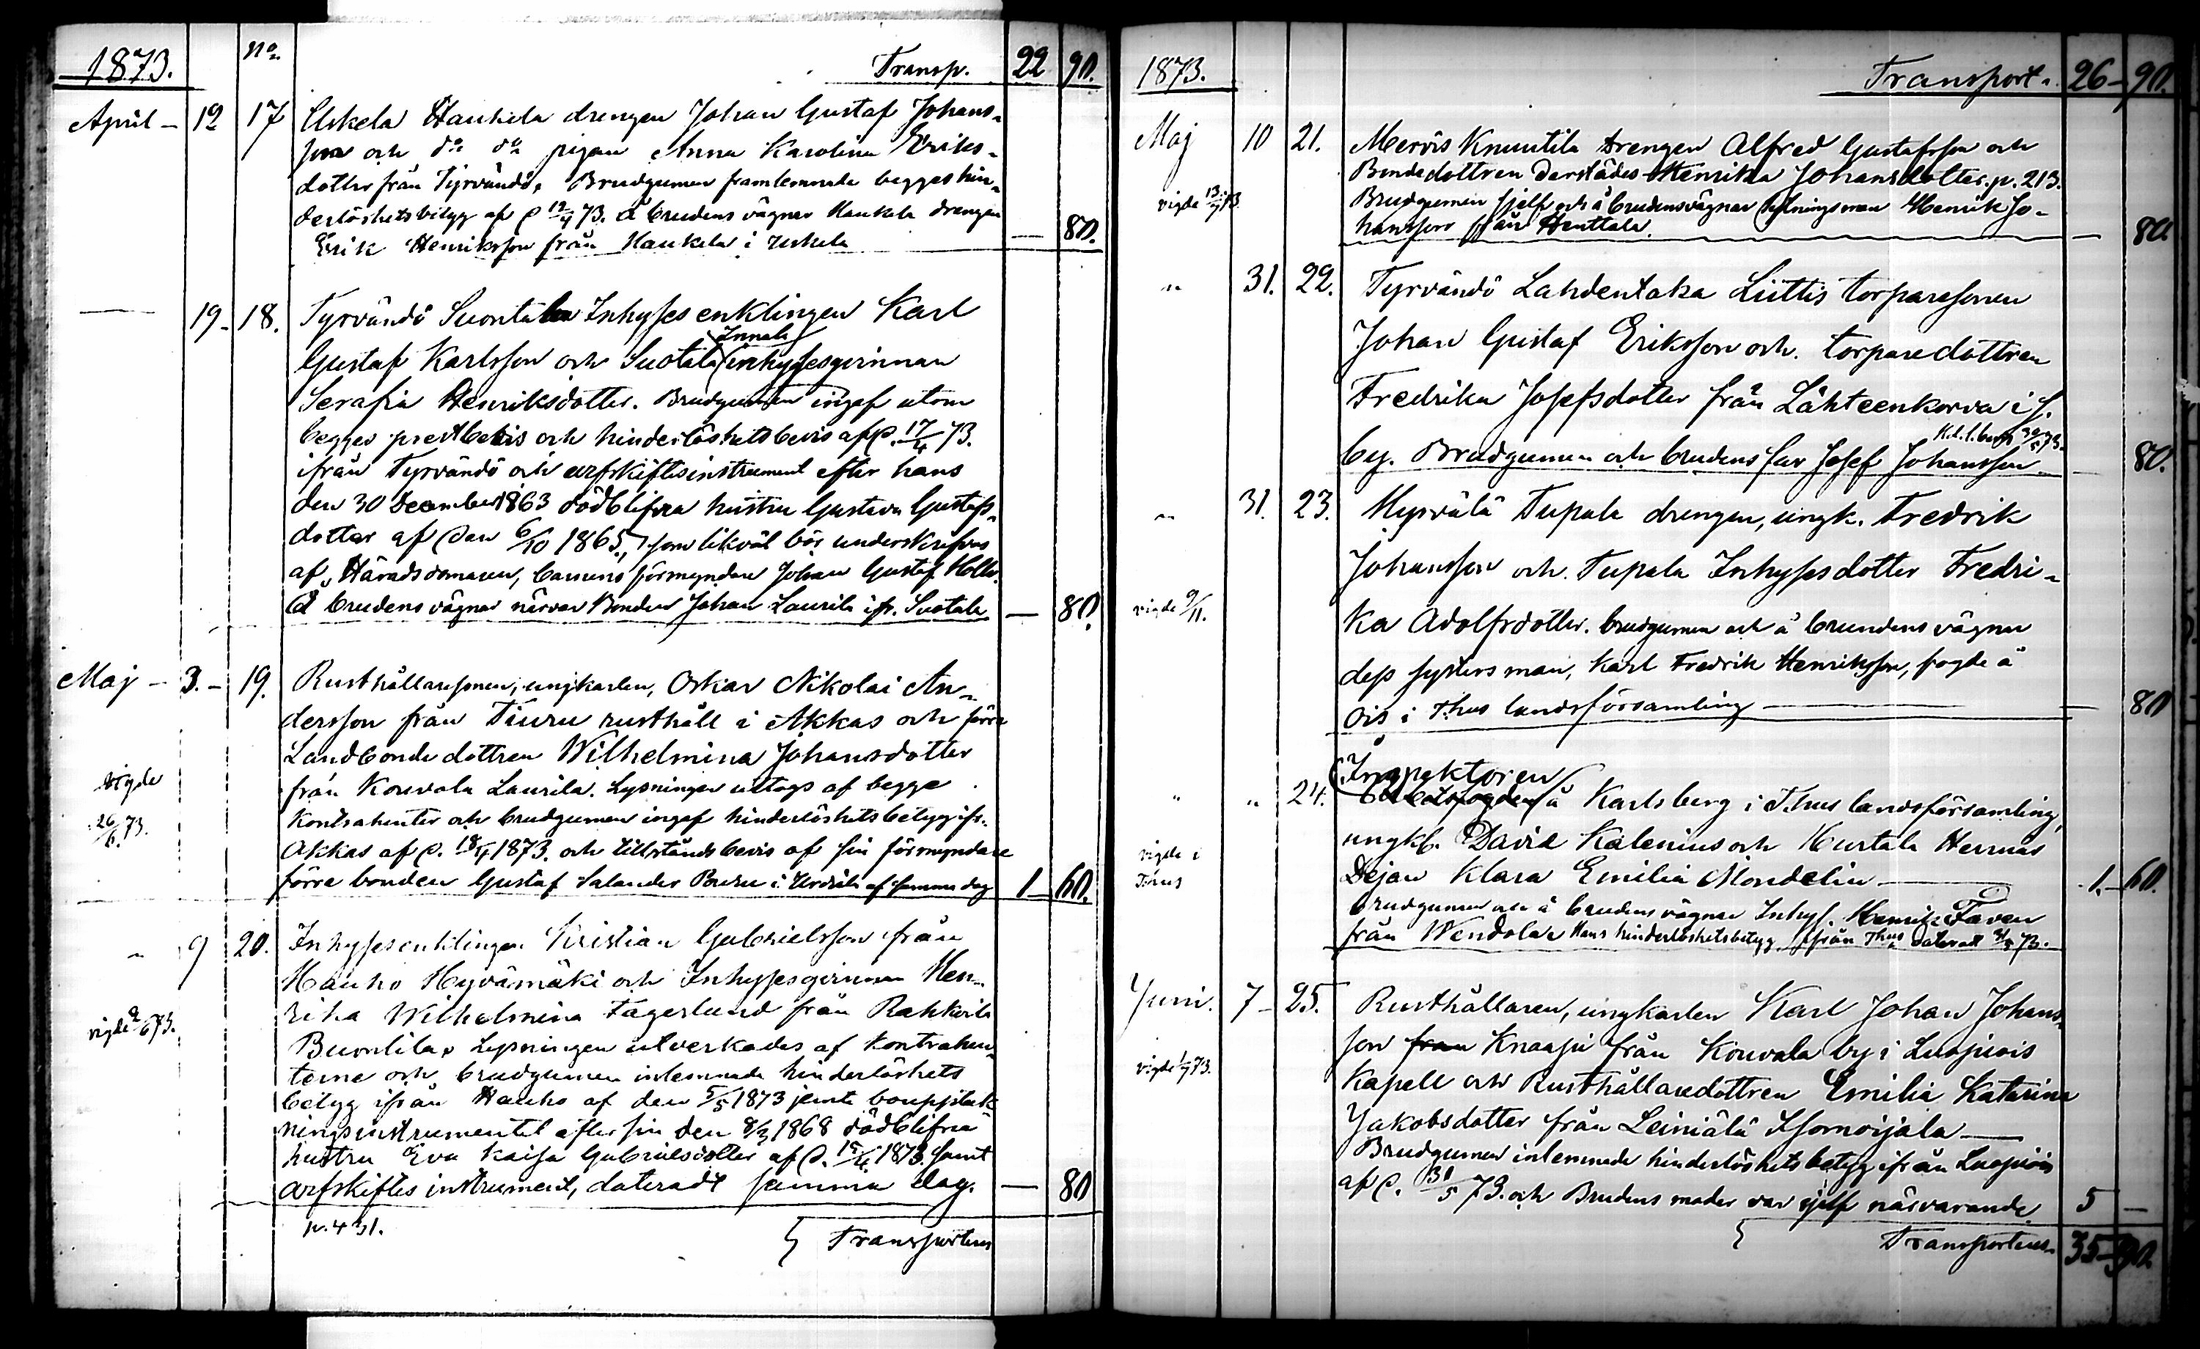 1873. No. Transp. 22 90.
April - 12 17 Urkela Haukela drengen Johan Gustaf Johans-
son och do do pigan Anna Karolina Eriks-
dotter från Tyrvändö. Brudgumen framlemnade begges hin-
derlöshetsbetyg af d 12/4 73. Å brudens vägnar Haukela drengen
Erik Henriksson från Haukela i Urkela — 80.
— 19- 18. Tyrvändö Suontala Inhyses enklingen Karl
Gustaf Karlsson och Suotala (Innala) inhysesqvinnan
Serafia Henriksdotter. Brudgumen ingaf utom
begges prestbetis och hinderlöshetsbevis af d. 17/4 73.
ifrån Tyrvändö och arfskiftesinstrument efter hans
den 30 December 1863 dödblifna hustru Gustava Gustafs-
dotter af den 6/10 1865, som likväl bör underskrifvas
af Häradsdomaren, barnens förmyndare Johan Gustaf
Å brudens vägnar närvar Bonden Johan Laurila ifr. Suotala. — 80.
Maj - 3. - 19. Rusthållaresonen, ungkarlen, Oskar Nikolai An-
dersson från Tiuru rusthåll i Akkas och förre
Landbonde dottren Wilhelmina Johansdotter
vigde från Konvala Laurila. Lysningen uttogs af begge
26/6 73. Kontrahenter och brudgumen ingaf hinderlöshetsbetyg ifr.
Akkas af d. 18/4 1873. och tillståndsbevis af sin förmyndare
förre bonden Gustaf Salander i af samma dag 1 - 60.
" 9 20. Inhysesenklingen Kristian Gabrielsson från
Hauho Hyvämäki och Inhysesqvinnan Hen-
rika Wilhelmina Fagerlund från Rahkoila
vigde 2/6 73. Buontila. Lysningen utverkades af Kontrahen-
terne och brudgumen inlemnade hinderlöshets
betyg ifrån Hauho af den 5/5 1873 jemte bouppteck-
ningsinstrumentet efter sin den 8/3 1868 dödblifna
hustru Eva Kaisa Gabrielsdotter af d. 15/4 1873. samt
arfskiftes instrument, dateradt samma dag. — 80
p. 431. Transporteras
1873. Transport. 26 - 90.
Maj 10 21. Mervis Knuutila drengen Alfred Gustafsson och
Bondedottren derstädes Henrika Johansdotter. p. 213.
vigde 13/7 73 Brudgumen sjelf och å brudens vägnar Henrik Jo-
hansson från Henttala. — 80.
" 31. 22. Tyrvändö Lahdentaka Liittis torparesonen
Johan Gustaf Eriksson och torparedottren
Fredrika Josefsdotter från Lähteenkorva i s.
by. Brudgumen och brudens far Josef Johansson 80.
" 31. 23. Hyrvälä Tupala drengen, ungk. Fredrik
Johansson och Tupala Inhysesdotter Fredri-
vigde 9/11. ka Adolfsdotter. brudgumen och å brundens vägnar
dess systers man, Karl Fredrik Henriksson, fogde å
Ois i Thus landsförsamling — 80
" " 24. (Inspektoren) å Karlsberg i Thus landsförsamling,
ungk. David Kalenius och Hurtala Hernas
vigde i Dejan Klara Emilia Mondelin — 1. - 60.
Thus brudgumen och å brudens vägnar Inhys. Henrik Faven
från Wendola. Hans hinderlöshetsbetyg från Thus dateradt 73.
Juni. 7 - 25. Rusthållaren, ungkarlen Karl Johan Johans-
son från Knaapi från Konvala by i Luopiois
vigde 1/7 73. Kapell och Rusthållaredottren Emilia Katarina
Jakobsdotter från Leiniälä
Brudgumen inlemnade hinderlöshetsbetyg ifrån Luopiois
af d. 31/5 73. och Brudens moder var sjelf närvarande. 5 —
Transporteras 35 - 90